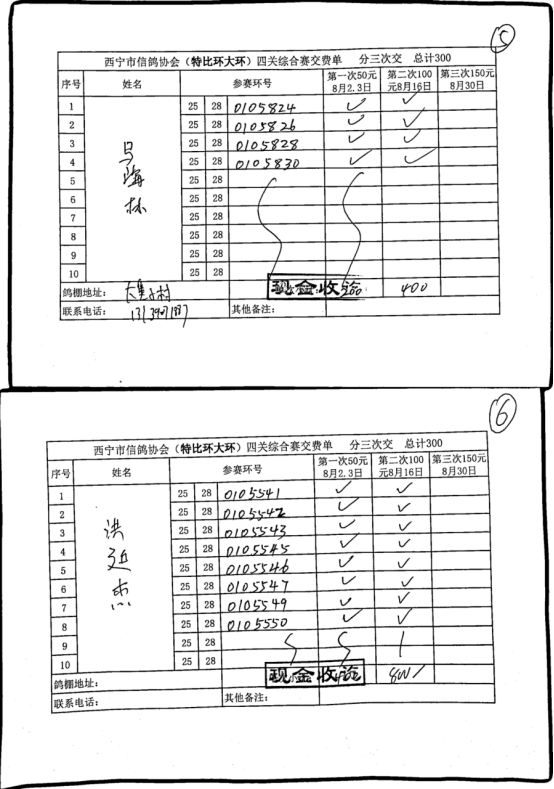 ⑤
西宁市信鸽协会（特比环大环）四关综合赛交费单 分三次交 总计300
序号 姓名 参赛环号 第一次50元8月2.3日 第二次100元8月16日 第三次150元8月30日
1 25 28 0105824 ✓ ✓
2 25 28 0105826 ✓ ✓
3 25 28 0105828 ✓ ✓
4 25 28 0105830 ✓ ✓
5 25 28
6 25 28
7 25 28
8 25 28
9 25 28
10 25 28
海林
鸽棚地址： 现金收讫 400
联系电话： 其他备注：
⑥
西宁市信鸽协会（特比环大环）四关综合赛交费单 分三次交 总计300
序号 姓名 参赛环号 第一次50元8月2.3日 第二次100元8月16日 第三次150元8月30日
1 25 28 0105541 ✓ ✓
2 25 28 0105542 ✓ ✓
3 25 28 0105543 ✓ ✓
4 25 28 0105545 ✓ ✓
5 25 28 0105546 ✓ ✓
6 25 28 0105547 ✓ ✓
7 25 28 0105549 ✓ ✓
8 25 28 0105550 ✓ ✓
9 25 28
10 25 28
洪延杰
鸽棚地址： 现金收讫
联系电话： 其他备注：